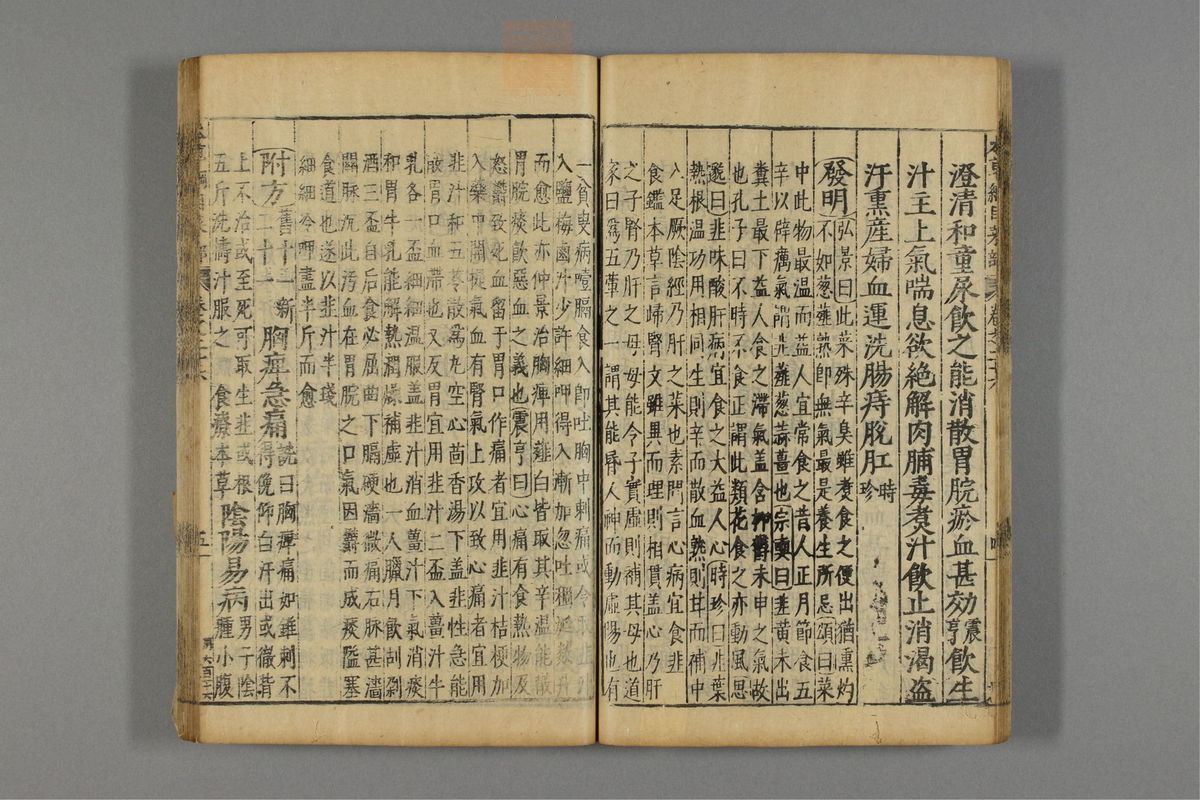 澄清和童尿飲之能消散胃脘瘀血甚効震亨飲生
汁王上氣喘息欲絶解肉脯毒煮汁飲止消渴盜
汗熏産婦血運洗腸痔脫肛時珍
發明弘景曰此菜殊辛臭雖煮食之便出猶熏灼
不如葱薤熟即無氣最是養生所忌頌曰菜
中此物最温而益人宜常食之昔人正月節食五
辛以辟癘氣謂韭薤葱蒜薑也宗奭曰韭黃未出
糞土最下益人食之滯氣蓋含抑鬱未申之氣故
也孔子曰不時不食正謂此類花食之亦動風思
邈曰韭味酸肝病宜食之大益人心時珍曰韭葉
熱根温功用相同生則辛而散血熟則甘而補中
入足厥陰經乃肝之菜也素問言心病宜食韭
食鑑本草言歸腎文雖異而理則相貫蓋心乃肝
之子腎乃肝之母母能令子實虛則補其母也道
家曰爲五葷之一謂其能昏人神而動虛陽也有
一貧叟病噎膈食入卽吐胸中刺痛或令取韭汁
入鹽梅鹵汁少許細呷得入漸加忽吐稠涎數升
而愈此亦仲景治胸痺用薤白皆取其辛温能散
胃脘痰飲惡血之義也震亨曰心痛有食熱物及
怒鬱致死血留于胃口作痛者宜用韭汁桔梗加
入藥中開提氣血有腎氣上攻以致心痛者宜用
韭汁和五苓散爲丸空心茴香湯下蓋韭性急能
散胃口血滯也又反胃宜用韭汁二盃入薑汁牛
乳各一盃細細温服蓋韭汁消血薑汁下氣消痰
和胃牛乳能解熱潤燥補虛也一人臘月飲刮剁
酒三盃自后食必屈曲下膈硬澀微痛右脉甚濇
關脉沉此汚血在胃脘之口氣因鬱而成痰隘塞
食道也遂以韭汁半琖
細細冷呷盡半斤而愈
附方舊十一新二十一胸痺急痛詵曰胸痺痛如錐刺不
得俛仰白汗出或徹背
上不治或至死可取生韭或根
五斤洗擣汁服之食療本草陰陽易病男子陰
腫小腹